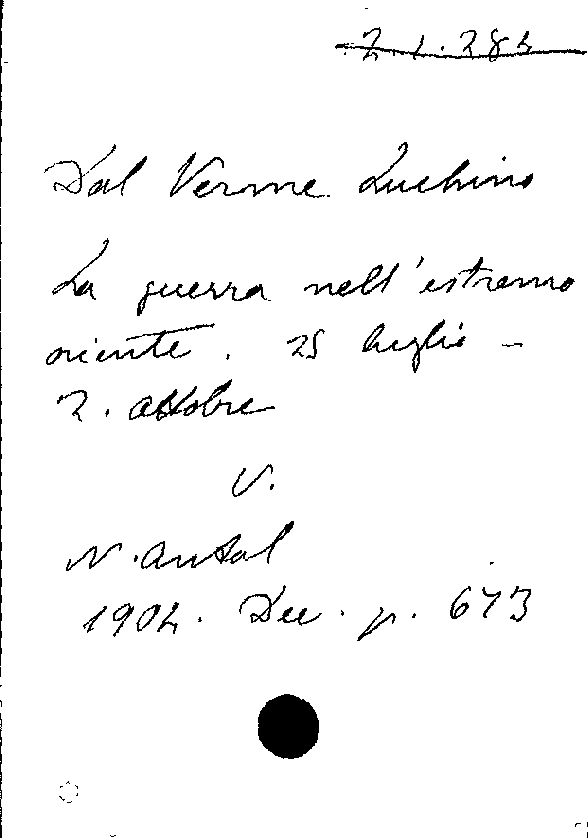 2.1.283
Dal Verme Luchino
La guerra nell'estremo
oriente. 25 luglio -
2. ottobre
V.
N. Antol
1904. Dec. p. 673